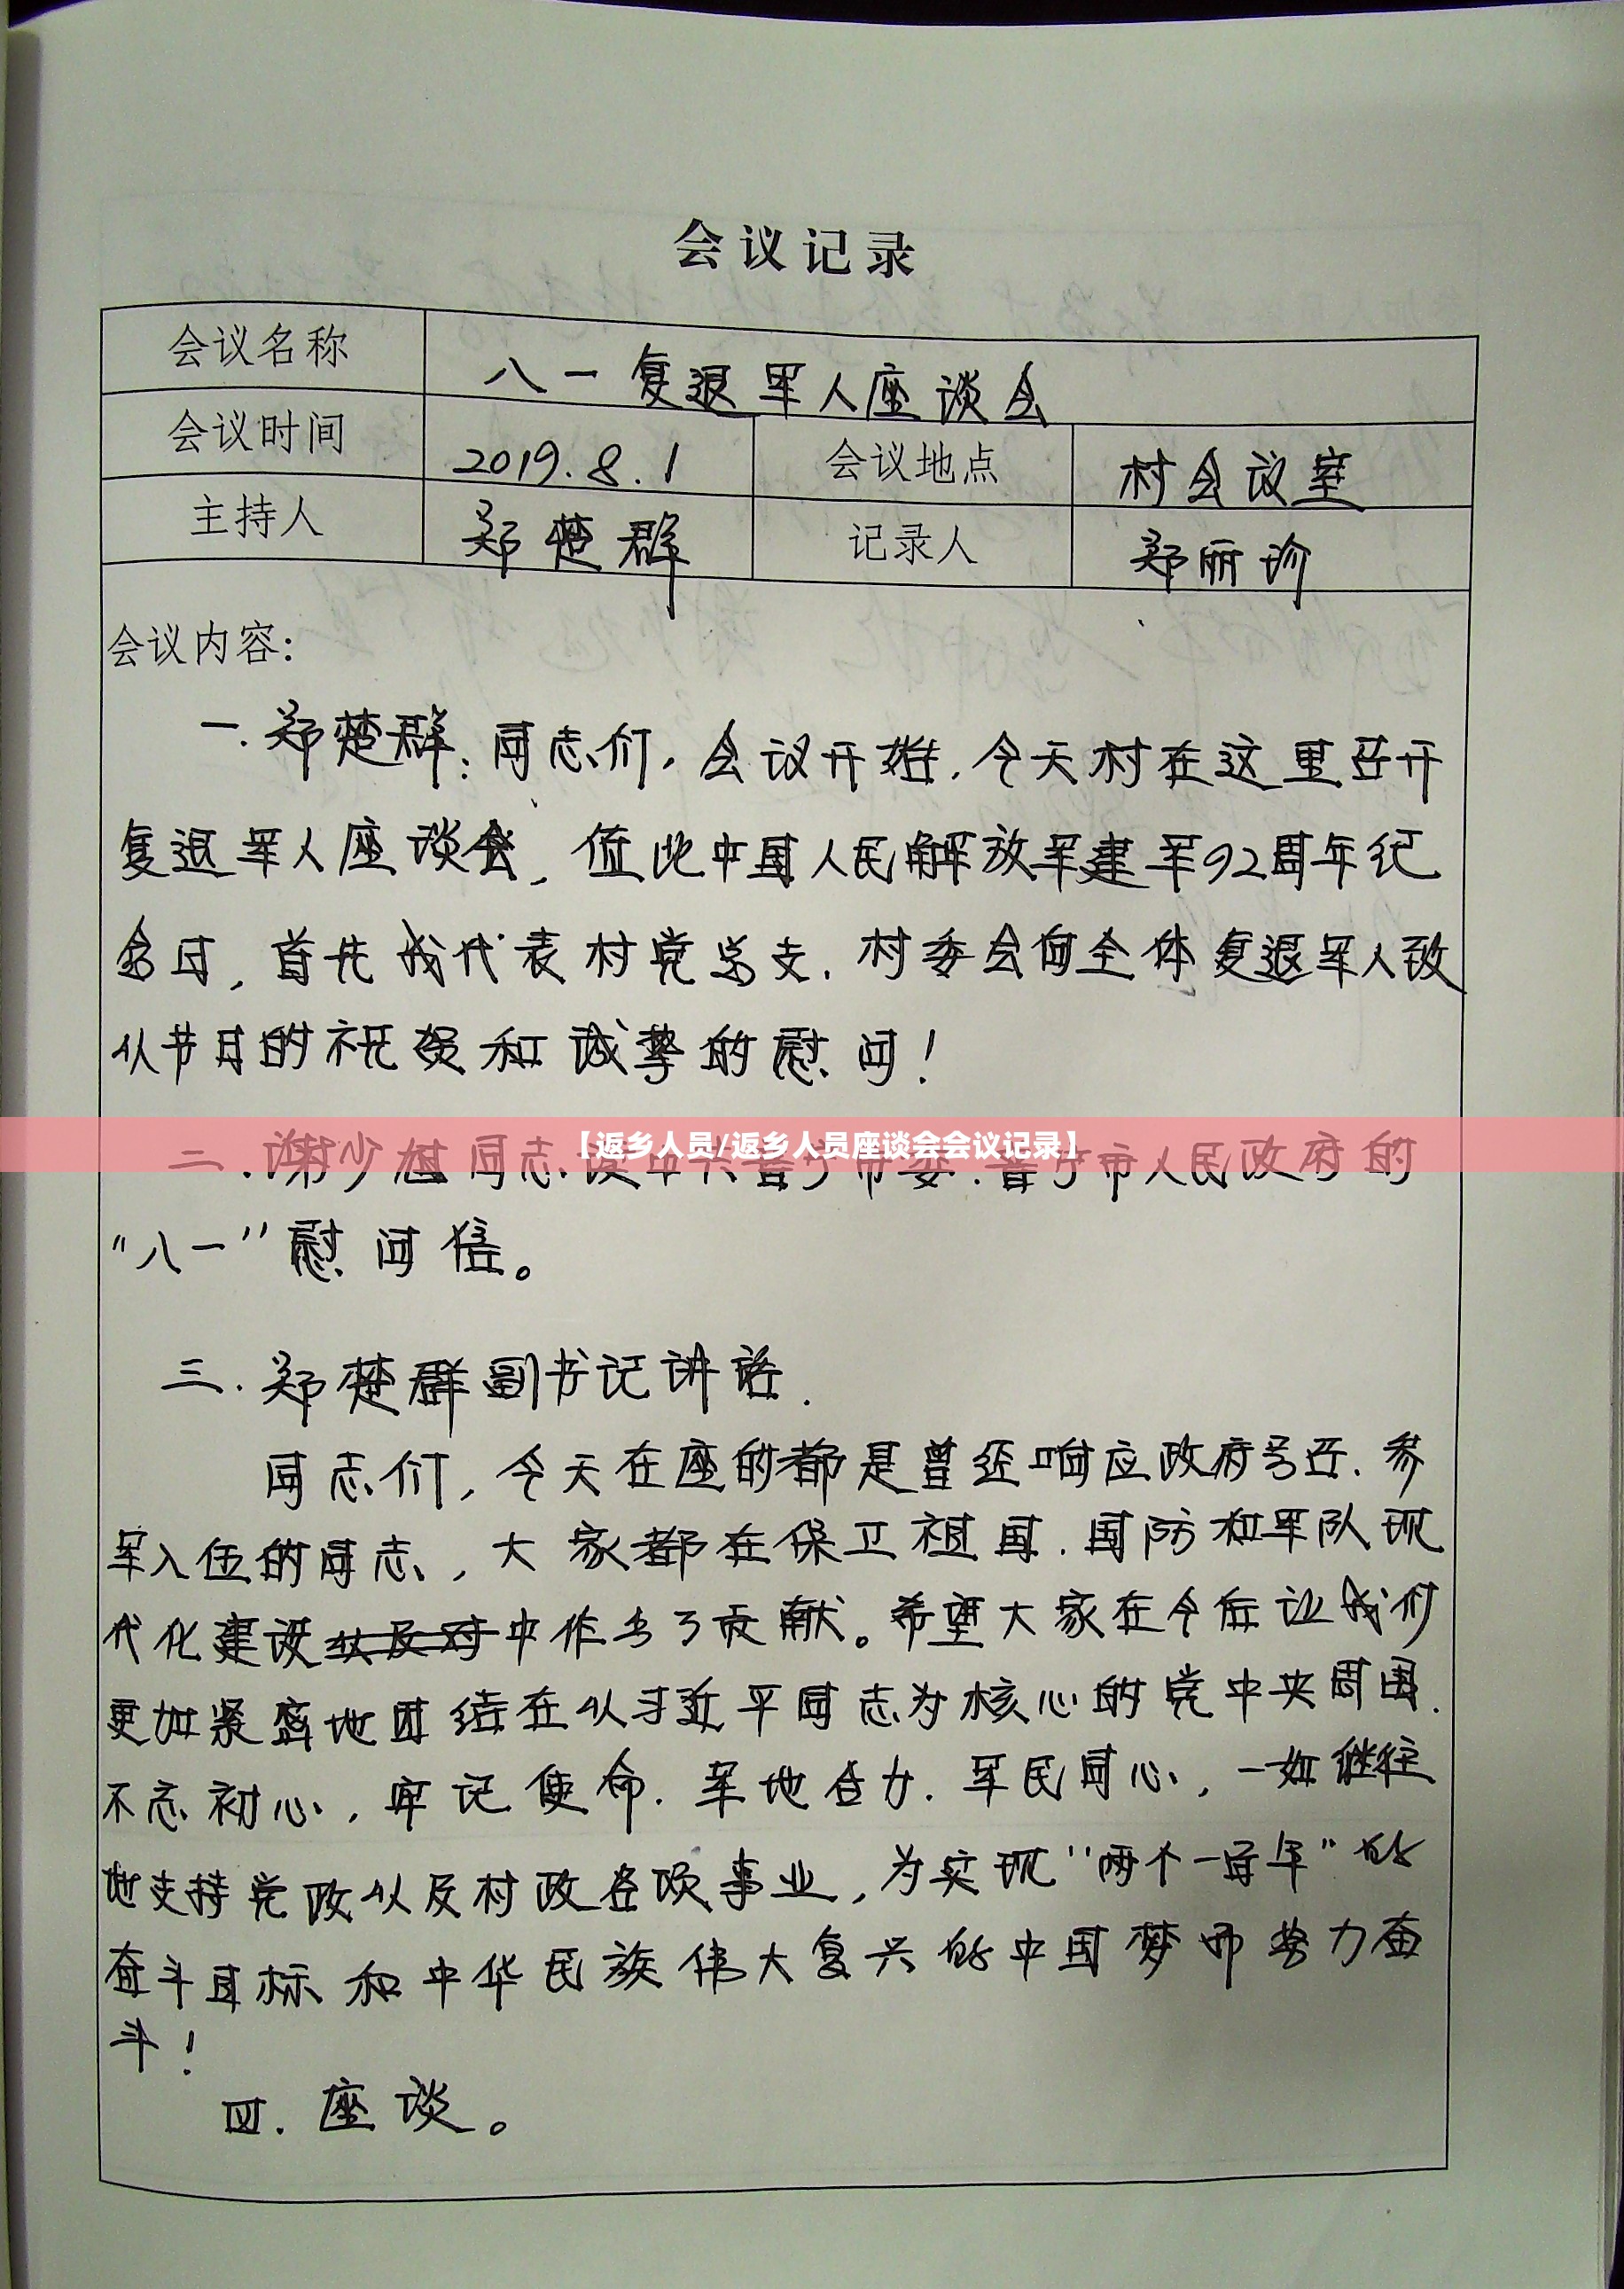 会议记录
会议名称 八一复退军人座谈会
会议时间 2019.8.1 会议地点 村会议室
主持人 郑楚群 记录人 郑丽珍
会议内容:
一.郑楚群:同志们,会议开始.今天村在这里召开
复退军人座谈会,值此中国人民解放军建军92周年纪
念日,首先我代表村党总支.村委会向全体复退军人致
以节日的祝贺和诚挚的慰问!
【返乡人员/返乡人员座谈会会议记录】
二.谢少 同志读中共普宁市委.普宁市人民政府的
“八一”慰问信。
三.郑楚群副书记讲话.
同志们,今天在座的都是曾经响应政府号召.参
军入伍的同志,大家都在保卫祖国.国防和军队现
代化建设以及对中作出了贡献。希望大家在今后让我们
更加紧密地团结在以习近平同志为核心的党中央周围.
不忘初心,牢记使命.军地合力.军民同心,一如继往
地支持党政以及村政各项事业,为实现“两个一百年”的
奋斗目标和中华民族伟大复兴的中国梦而努力奋
斗!
四.座谈。